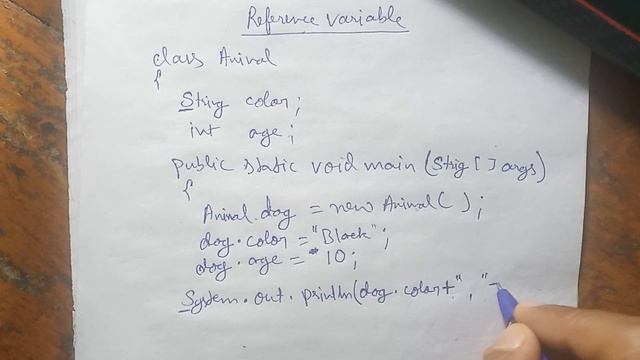 Reference variable
class Animal
{
String color;
int age;
public static void main (Strig [ ] args)
{
Animal dog = new Animal( );
dog.color = "Black";
dog.age = 10;
System.out.println(dog.color+" , "